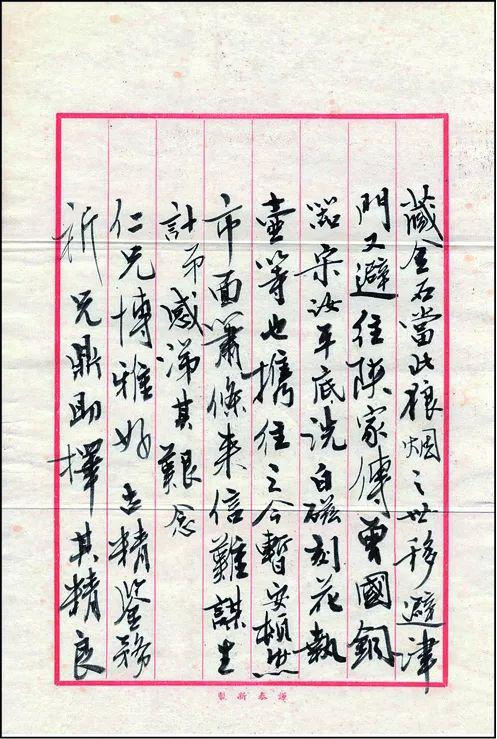 藏金石當此狼烟之世移避津
門又避往陳家傳曾國銅
器宋汝平底洗白磁刻花執
壺等也攜往之今暫安頓然
市面蕭條来信難謀生
計弟感涕其艱念
仁兄博雅好古精鉴務
祈兄鼎助擇其精良
製新泰